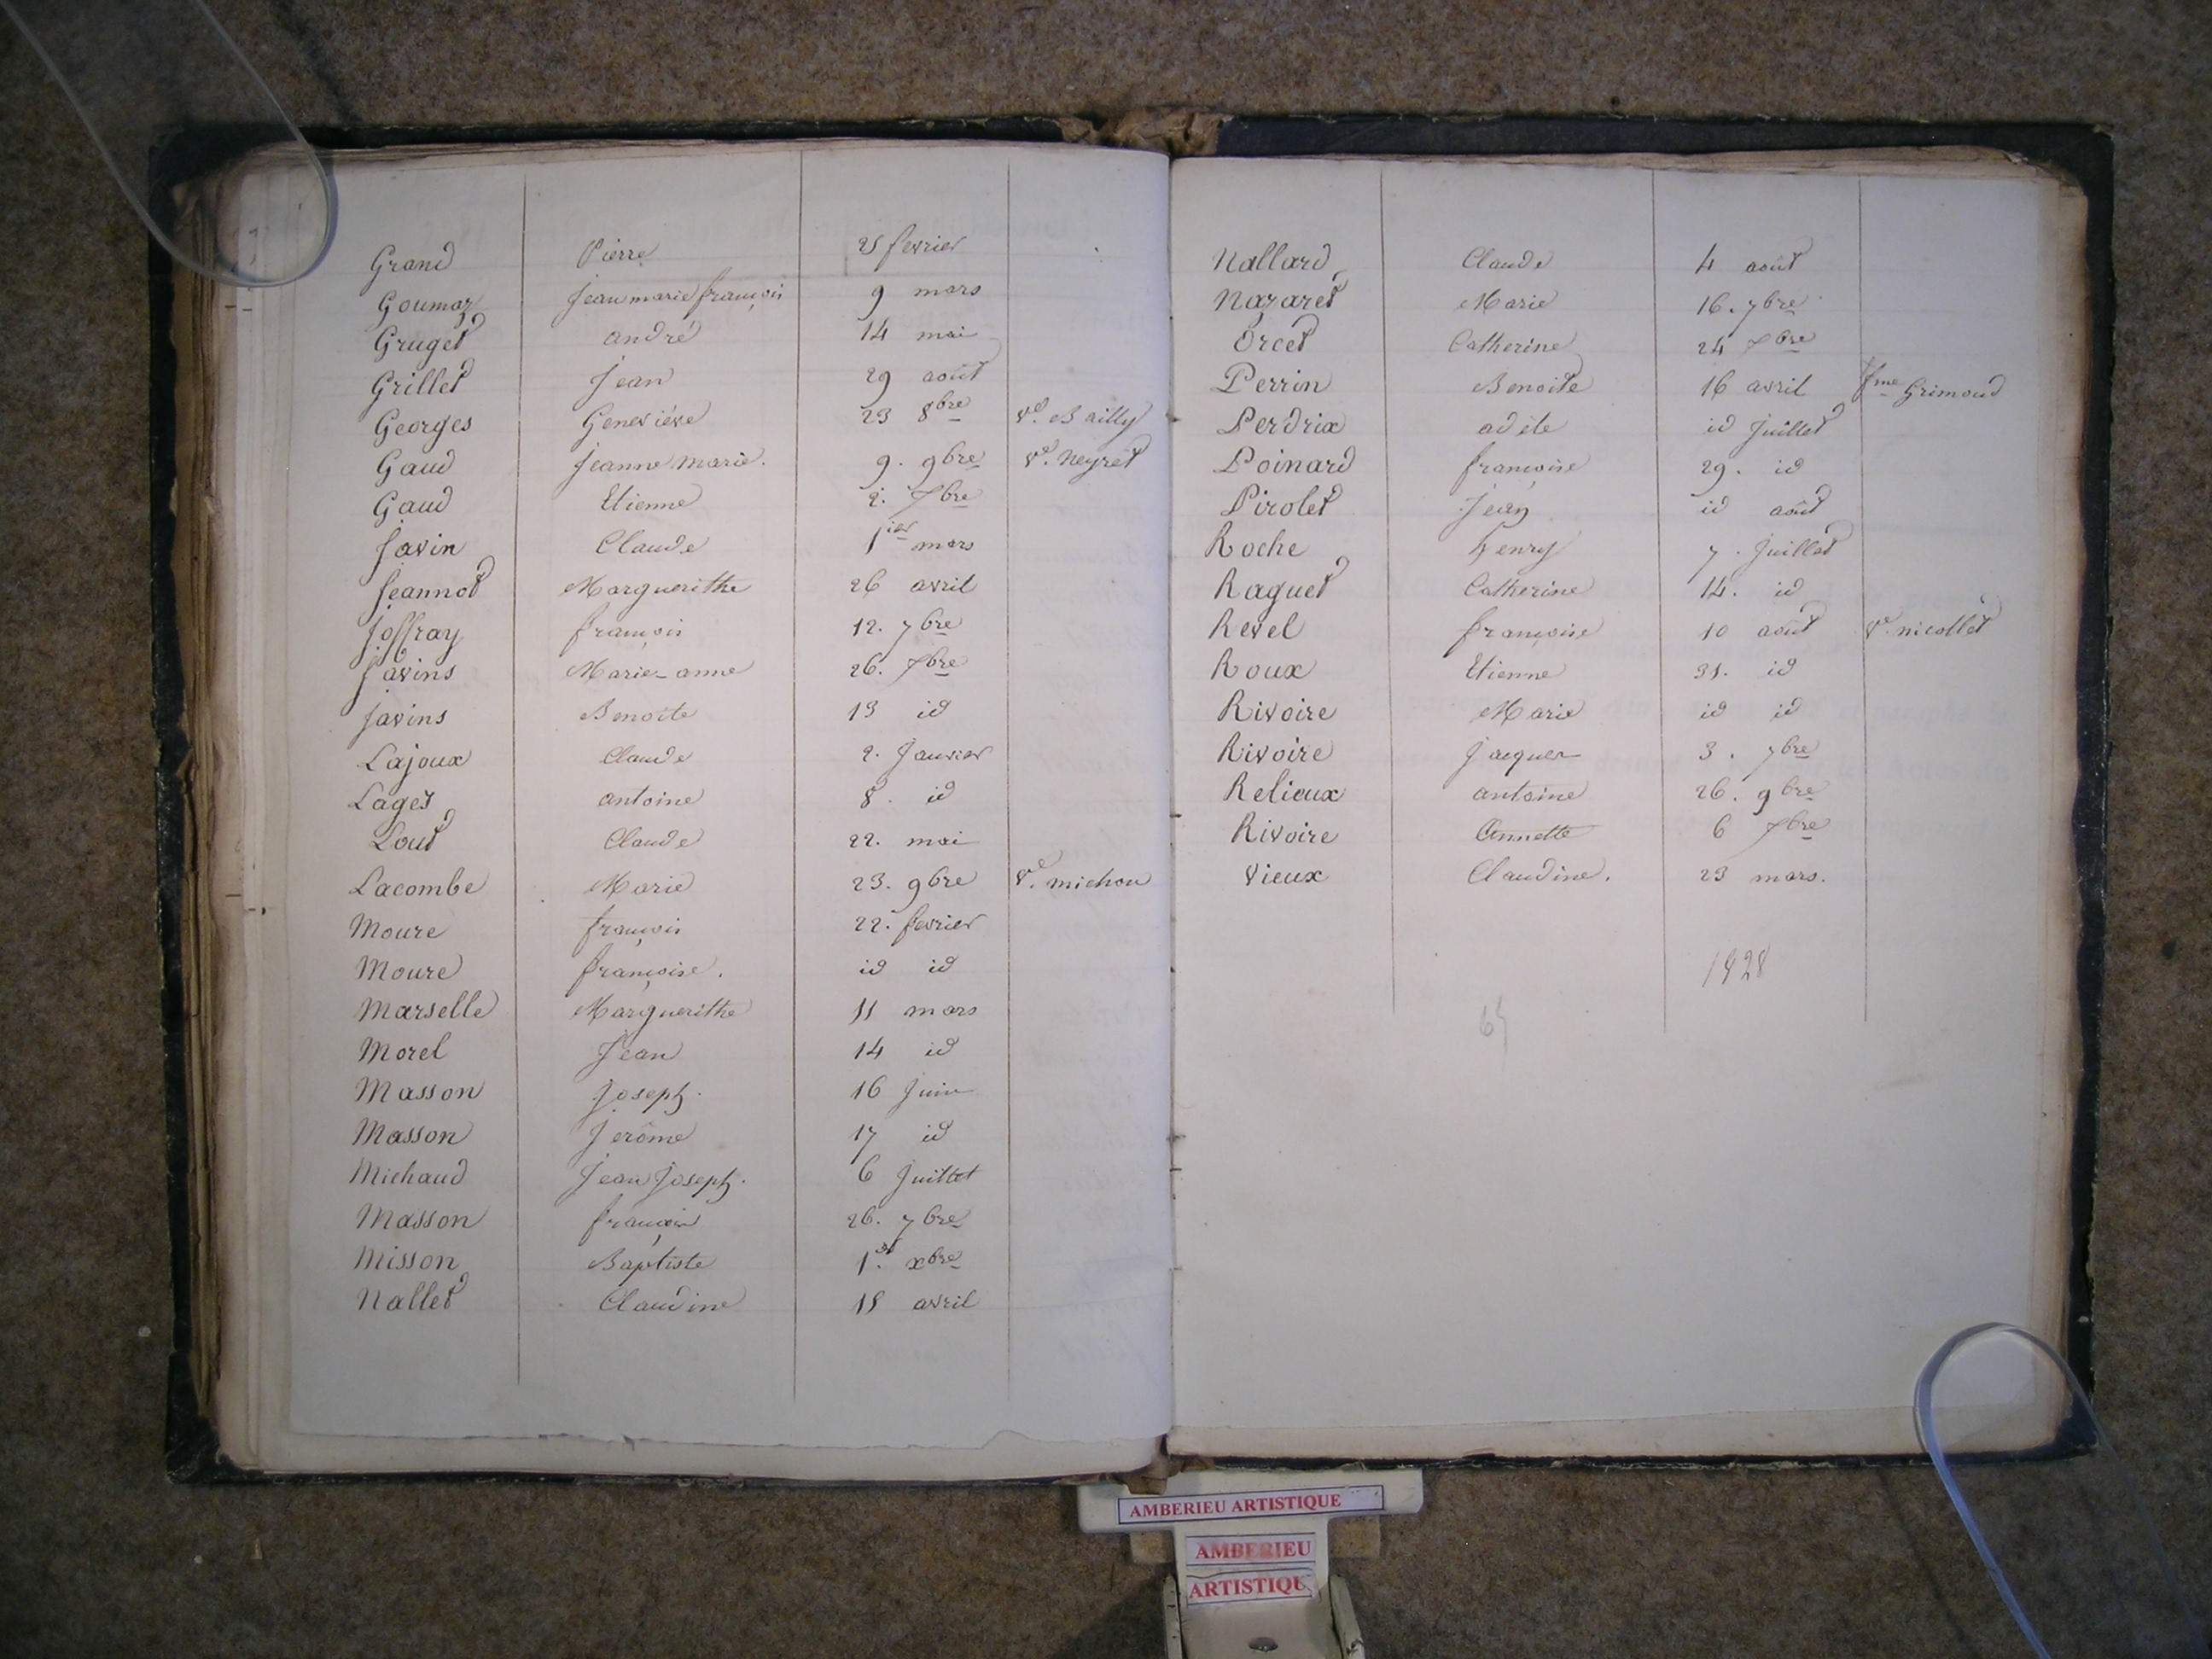 Grand Pierre 25 fevrier
Goumaz Jean marie françois 9 mars
Gruget andré 14 mai
Grillet Jean 29 août
Georges Geneviéve 23 8bre Ve. Bailly
Gaud Jeanne marie. 9. 9bre Ve. Neyret
Gaud Etienne 2. 7bre
Javin Claude 1ier mars
Jeannot Marguerithe 26 avril
Joffray françois 12. 7bre
Javins Marie-anne 26. 7bre
Javins Benoite 13 id
Lajoux Claude 2. Janvier
Lages antoine 8. id
Lout Claude 22. mai
Lacombe Marie 23. 9bre Ve. michon
Moure françois 22. fevrier
Moure françoise. id id
Marselle Marguerithe 11 mars
Morel Jean 14 id
Masson Joseph. 16 Juin
Masson Jerôme 17 id
Michaud Jean Joseph. 6 Juillet
Masson françois 26. 7bre
Misson Baptiste 1er. xbre
Nallet Claudine 15 avril
Nallard Claude 4 août
Nazaret Marie 16. 7bre
Orcet Catherine 24 7bre
Perrin Benoite 16 avril fme Grimoud
Perdrix adéle id Juillet
Poinard françoise 29. id
Pirolet Jean id août
Roche henry 7. Juillet
Raguet Catherine 14. id
Revel françoise 10 août Ve. nicollet
Roux Etienne 31. id
Rivoire Marie id id
Rivoire Jacques 3. 7bre
Relieux antoine 26. 9bre
Rivoire Annette 6 7bre
Vieux Claudine. 23 mars.
1828
65
AMBERIEU ARTISTIQUE
AMBERIEU
ARTISTIQU